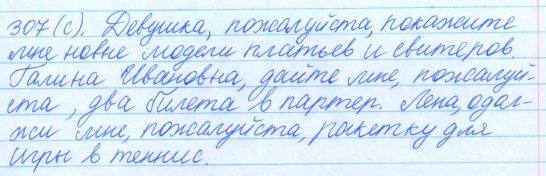 307 (с). Девушка, пожалуйста, покажите
мне новые модели платьев и свитеров.
Галина Ивановна, дайте мне, пожалуй-
ста, два билета в партер. Лена, одол-
жи мне, пожалуйста, ракетку для
игры в теннис.